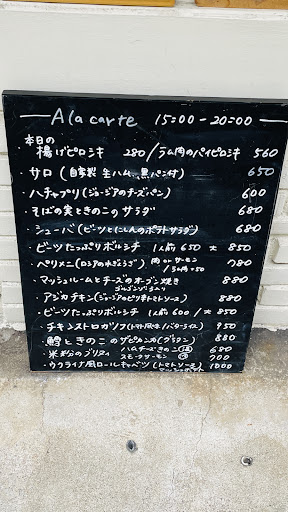 A la carte 15:00 - 20:00
本日の
揚げピロシキ 280 / ラム肉のパイピロシキ 560
サロ (自家製 生ハム、黒パン付) 650
ハチャプリ (ジョージアのチーズパン) 600
・そばの実ときのこのサラダ 680
・シューバ (ビーツとにしんのポテトサラダ) 680
・ビーツたっぷりボルシチ 1人前 650 大 850
・ペリメニ (ロシアの水ぎょうざ) 肉 or サーモン 780
・マッシュルームとチーズのオーブン焼き 880
ゴルゴンゾーラ入り
・アジカチキン (ジョージアのピリ辛トマトソース) 880
・ビーツたっぷりボルシチ 1人前 600 / 大 850
・チキンストロガノフ (トマト風味 バターライス) 950
・鱈ときのこのザピエンカ (グラタン) 880
・米粉のブリヌイ ハムチーズきのこ 680
スモークサーモン 700
・ウクライナ風ロールキャベツ (トマトソース 1000